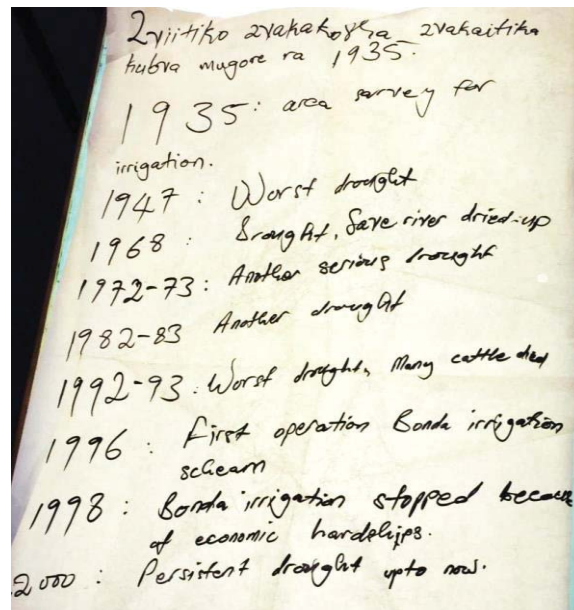 Zviitiko zvakakosha zvakaitika
kubva mugore ra 1935.
1935: area survey for
irrigation.
1947: Worst drought
1968: Drought, Save river dried-up
1972-73: Another serious drought
1982-83 Another drought
1992-93: Worst drought, Many cattle died
1996: First operation Bonda irrigation
scheam
1998: Bonda irrigation stopped because
of economic hardships.
2000: Persistent drought upto now.